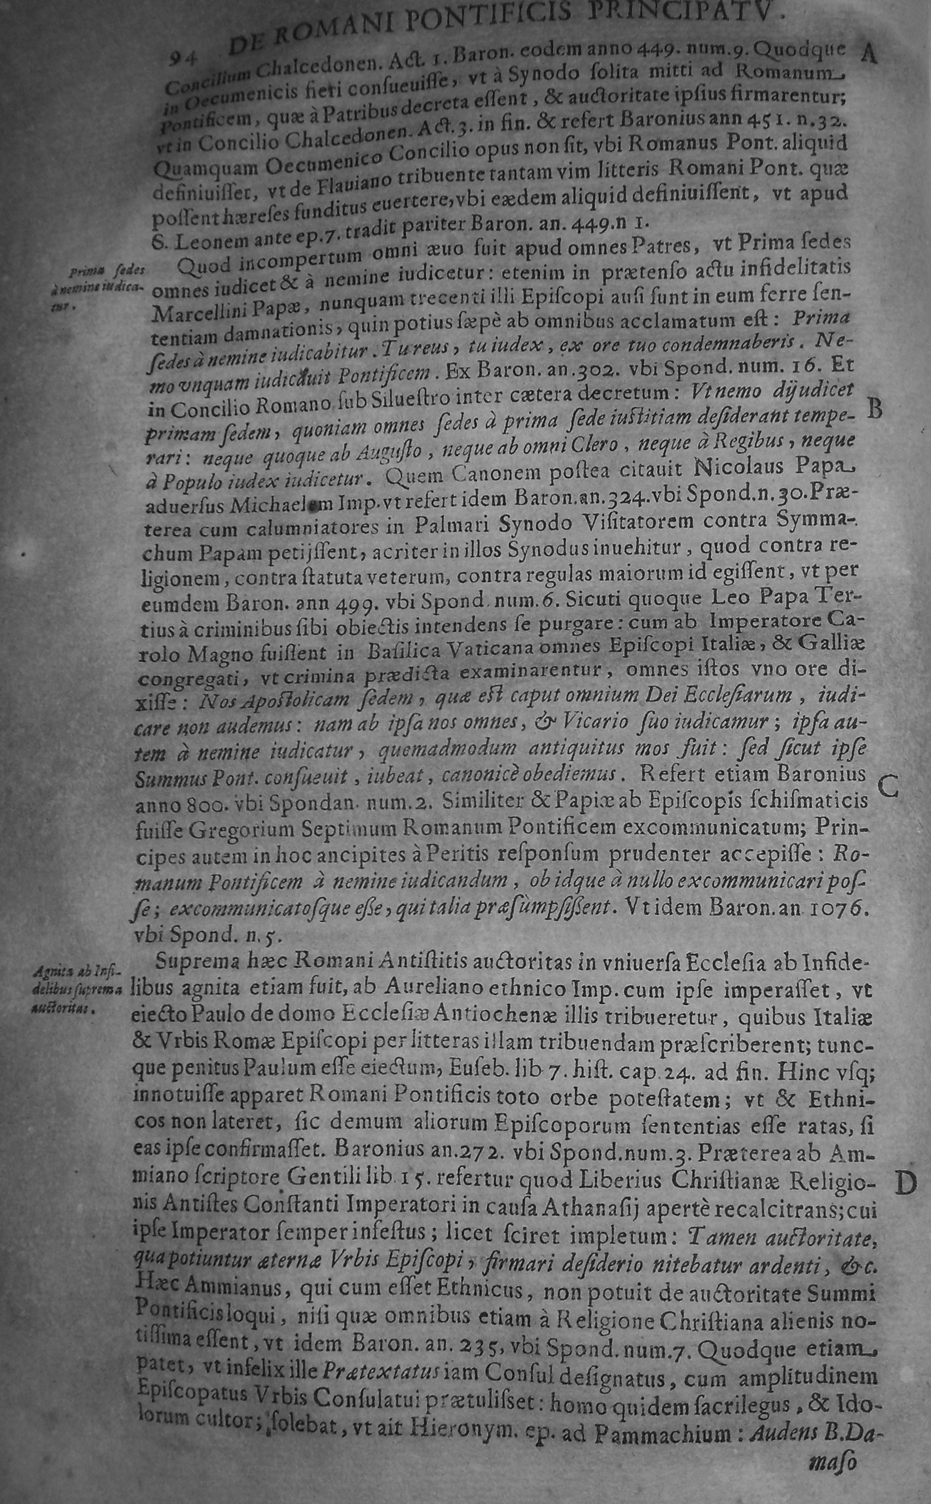 94 DE ROMANI PONTIFICIS PRINCIPATV.
Concilium Chalcedonen. Act. 1. Baron. eodem anno 449. num. 9. Quodque A
in Oecumenicis fieri conſueuiſſe, vt à Synodo ſolita mitti ad Romanum
Pontificem, quæ à Patribus decreta eſſent, & auctoritate ipſius firmarentur;
vt in Concilio Chalcedonen. Act. 3. in fin. & refert Baronius ann 451. n. 32.
Quamquam Oecumenico Concilio opus non ſit, vbi Romanus Pont. aliquid
definiuiſſet, vt de Flauiano tribuente tantam vim litteris Romani Pont. quæ
poſſent hæreſes funditus euertere, vbi eædem aliquid definiuiſſent, vt apud
S. Leonem ante ep. 7. tradit pariter Baron. an. 449. n 1.
Prima ſedes
à nemine iudica-
tur.
Quod incompertum omni æuo fuit apud omnes Patres, vt Prima ſedes
omnes iudicet & à nemine iudicetur: etenim in prætenſo actu infidelitatis
Marcellini Papæ, nunquam trecenti illi Epiſcopi auſi ſunt in eum ferre ſen-
tentiam damnationis, quin potius ſæpè ab omnibus acclamatum eſt: Prima
ſedes à nemine iudicabitur. Tu reus, tu iudex, ex ore tuo condemnaberis. Ne-
mo vnquam iudicauit Pontificem. Ex Baron. an. 302. vbi Spond. num. 16. Et
in Concilio Romano ſub Silueſtro inter cætera decretum: Vt nemo dijudicet B
primam ſedem, quoniam omnes ſedes à prima ſede iuſtitiam deſiderant tempe-
rari: neque quoque ab Auguſto, neque ab omni Clero, neque à Regibus, neque
à Populo iudex iudicetur. Quem Canonem poſtea citauit Nicolaus Papa
aduerſus Michaelem Imp. vt refert idem Baron. an. 324. vbi Spond. n. 30. Præ-
terea cum calumniatores in Palmari Synodo Viſitatorem contra Symma-
chum Papam petijſſent, acriter in illos Synodus inuehitur, quod contra re-
ligionem, contra ſtatuta veterum, contra regulas maiorum id egiſſent, vt per
eumdem Baron. ann 499. vbi Spond. num. 6. Sicuti quoque Leo Papa Ter-
tius à criminibus ſibi obiectis intendens ſe purgare: cum ab Imperatore Ca-
rolo Magno fuiſſent in Baſilica Vaticana omnes Epiſcopi Italiæ, & Galliæ
congregati, vt crimina prædicta examinarentur, omnes iſtos vno ore di-
xiſſe: Nos Apoſtolicam ſedem, quæ eſt caput omnium Dei Eccleſiarum, iudi-
care non audemus: nam ab ipſa nos omnes, & Vicario ſuo iudicamur; ipſa au-
tem à nemine iudicatur, quemadmodum antiquitus mos fuit: ſed ſicut ipſe
Summus Pont. conſueuit, iubeat, canonicè obediemus. Refert etiam Baronius C
anno 800. vbi Spondan. num. 2. Similiter & Papiæ ab Epiſcopis ſchiſmaticis
fuiſſe Gregorium Septimum Romanum Pontificem excommunicatum; Prin-
cipes autem in hoc ancipites à Peritis reſponſum prudenter accepiſſe: Ro-
manum Pontificem à nemine iudicandum, ob idque à nullo excommunicari poſ-
ſe; excommunicatoſque eſſe, qui talia præſumpſiſſent. Vt idem Baron. an 1076.
vbi Spond. n. 5.
Agnita ab Infi-
delibus ſuprema
auctoritas.
Suprema hæc Romani Antiſtitis auctoritas in vniuerſa Eccleſia ab Infide-
libus agnita etiam fuit, ab Aureliano ethnico Imp. cum ipſe imperaſſet, vt
eiecto Paulo de domo Eccleſiæ Antiochenæ illis tribueretur, quibus Italiæ
& Vrbis Romæ Epiſcopi per litteras illam tribuendam præſcriberent; tunc-
que penitus Paulum eſſe eiectum, Euſeb. lib 7. hiſt. cap. 24. ad fin. Hinc vſq;
innotuiſſe apparet Romani Pontificis toto orbe poteſtatem; vt & Ethni-
cos non lateret, ſic demum aliorum Epiſcoporum ſententias eſſe ratas, ſi
eas ipſe confirmaſſet. Baronius an. 272. vbi Spond. num. 3. Præterea ab Am-
miano ſcriptore Gentili lib. 15. refertur quod Liberius Chriſtianæ Religio- D
nis Antiſtes Conſtanti Imperatori in cauſa Athanaſij apertè recalcitrans; cui
ipſe Imperator ſemper infeſtus; licet ſciret impletum: Tamen auctoritate,
qua potiuntur æternæ Vrbis Epiſcopi, firmari deſiderio nitebatur ardenti, &c.
Hæc Ammianus, qui cum eſſet Ethnicus, non potuit de auctoritate Summi
Pontificis loqui, niſi quæ omnibus etiam à Religione Chriſtiana alienis no-
tiſſima eſſent, vt idem Baron. an. 235, vbi Spond. num. 7. Quodque etiam
patet, vt infelix ille Prætextatus iam Conſul deſignatus, cum amplitudinem
Epiſcopatus Vrbis Conſulatui prætuliſset: homo quidem ſacrilegus, & Ido-
lorum cultor; ſolebat, vt ait Hieronym. ep. ad Pammachium: Audens B. Da-
maſo